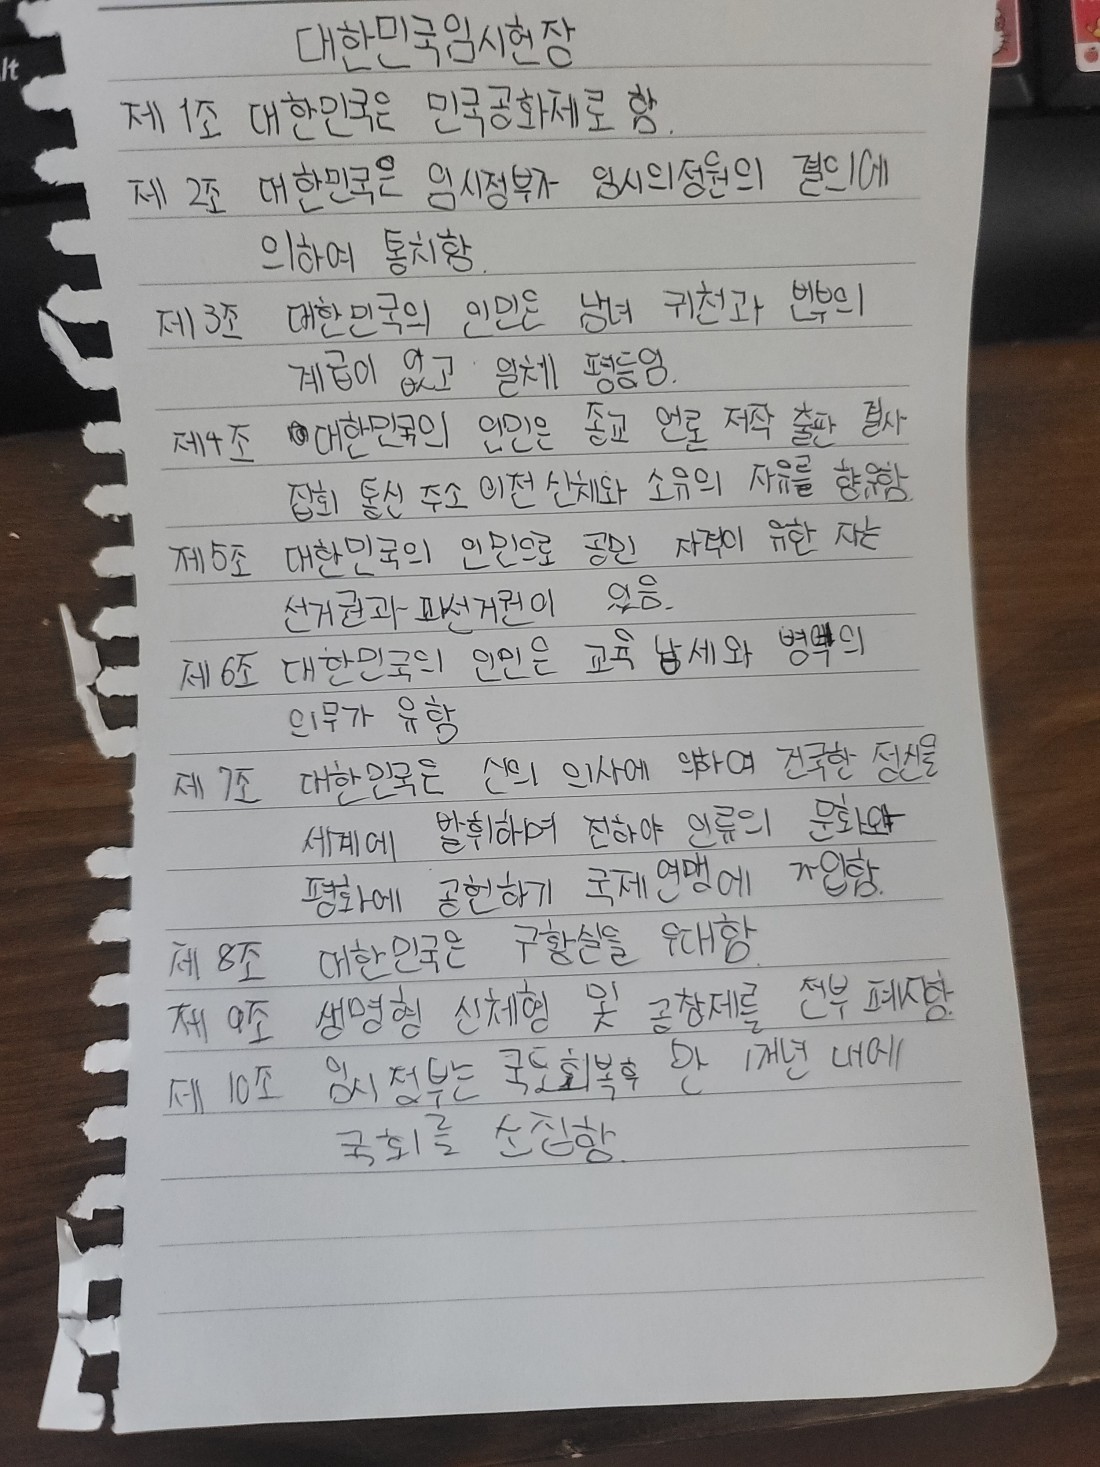 lt
대한민국임시헌장
제 1조 대한민국은 민국공화제로 함.
제 2조 대한민국은 임시정부가 임시의정원의 결의에
의하여 통치함.
제 3조 대한민국의 인민은 남녀 귀천과 빈부의
계급이 없고 일체 평등임.
제4조 대한민국의 인민은 종교 언론 저작 출판 결사
집회 통신 주소 이전 신체와 소유의 자유를 향유함.
제5조 대한민국의 인민으로 공민 자격이 유한 자는
선거권과 피선거권이 있음.
제 6조 대한민국의 인민은 교육 납세와 병역의
의무가 유함
제 7조 대한민국은 신의 의사에 의하여 건국한 정신을
세계에 발휘하여 진하야 인류의 문화와
평화에 공헌하기 국제연맹에 가입함.
제 8조 대한민국은 구황실을 우대함.
제 9조 생명형 신체형 및 공창제를 전부 폐지함.
제 10조 임시정부는 국토회복후 만 1개년 내에
국회를 소집함.